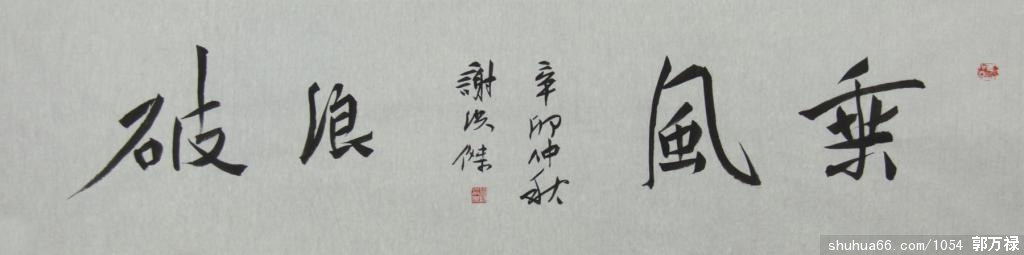 乘風
辛卯仲秋
謝洪傑
浪破
shuhua66.com/1054 郭万禄